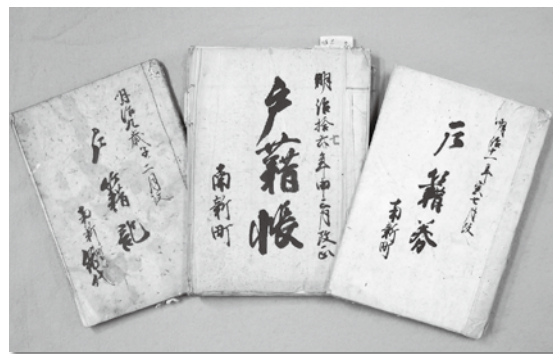 明治九歳子二月改
戸籍記
南新
明治拾六七年申二月改正
戸籍帳
南新町
明治廿一年
七月改
戸籍
南新町